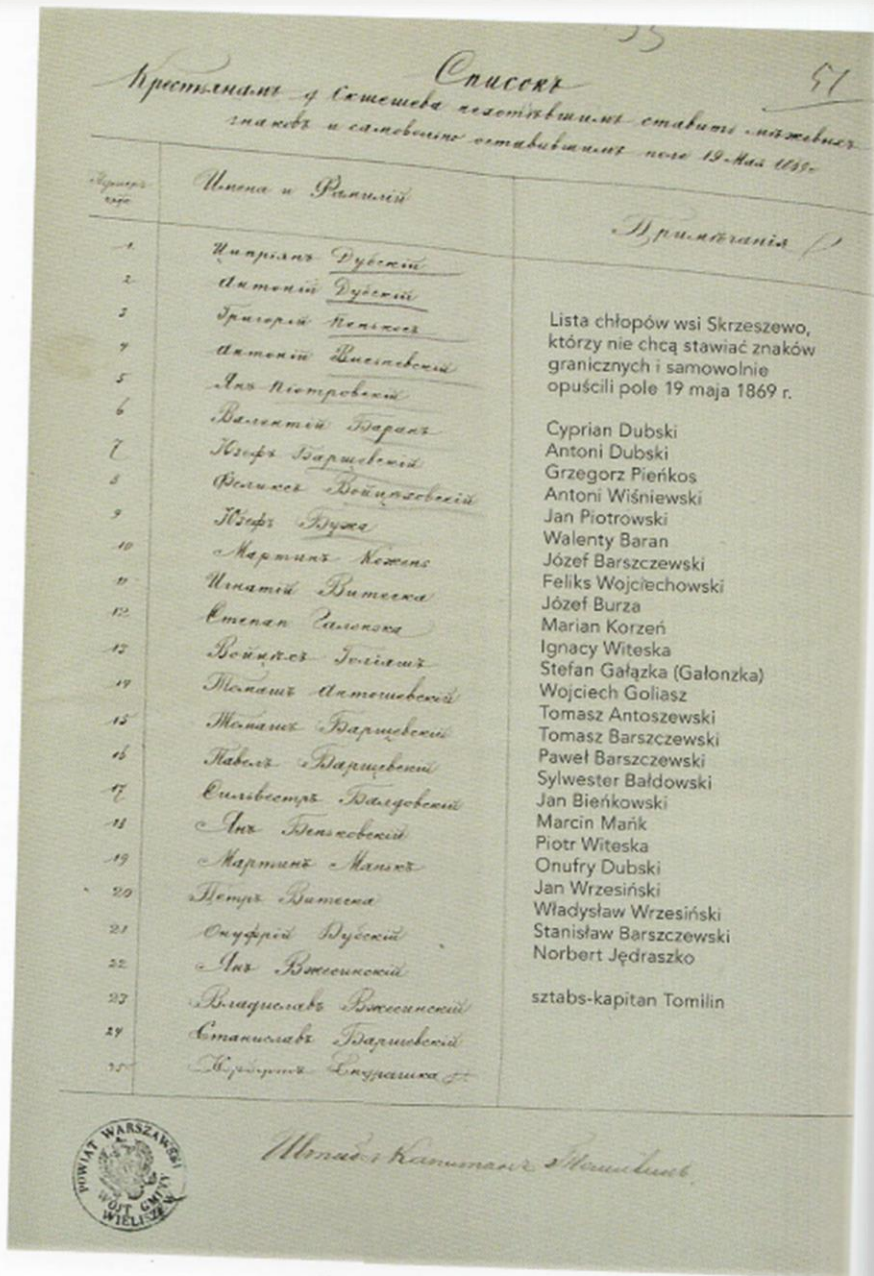 51
Списокъ
Крестьянамъ д Скшешева нехотѣвшимъ ставить межевыхъ
знаковъ и самовольно оставившимъ поле 19 Мая 1869 г
Имена и Фамилій
Примѣчанія
1 Ципріянъ Дубскій
2 Антоній Дубскій
3 Григорій Пенькосъ
4 Антоній Висьневскій
5 Янъ Піотровскій
6 Валентій Баранъ
7 Юзефъ Барщевскій
8 Феликсъ Войцѣховскій
9 Юзефъ Бужа
10 Мартинъ Коженъ
11 Игнатій Витеска
12 Степан Галонзка
13 Войцѣхъ Голіяшъ
14 Томашъ Антошевскій
15 Томашъ Барщевскій
16 Павелъ Барщевскій
17 Сильвестръ Балдовскій
18 Янъ Беньковскій
19 Мартинъ Манькъ
20 Петръ Витеска
21 Онуфрій Дубскій
22 Янъ Вжесинскій
23 Владиславъ Вжесинскій
24 Станиславъ Барщевскій
25 Норбертъ Ендрашка
Lista chłopów wsi Skrzeszewo,
którzy nie chcą stawiać znaków
granicznych i samowolnie
opuścili pole 19 maja 1869 r.
Cyprian Dubski
Antoni Dubski
Grzegorz Pieńkos
Antoni Wiśniewski
Jan Piotrowski
Walenty Baran
Józef Barszczewski
Feliks Wojciechowski
Józef Burza
Marian Korzeń
Ignacy Witeska
Stefan Gałązka (Gałonzka)
Wojciech Goliasz
Tomasz Antoszewski
Tomasz Barszczewski
Paweł Barszczewski
Sylwester Bałdowski
Jan Bieńkowski
Marcin Mańk
Piotr Witeska
Onufry Dubski
Jan Wrzesiński
Władysław Wrzesiński
Stanisław Barszczewski
Norbert Jędraszko
sztabs-kapitan Tomilin
Штабсъ Капитанъ Томилинъ
POWIAT WARSZAWSKI
WÓJT GMINY
WIELISZEW